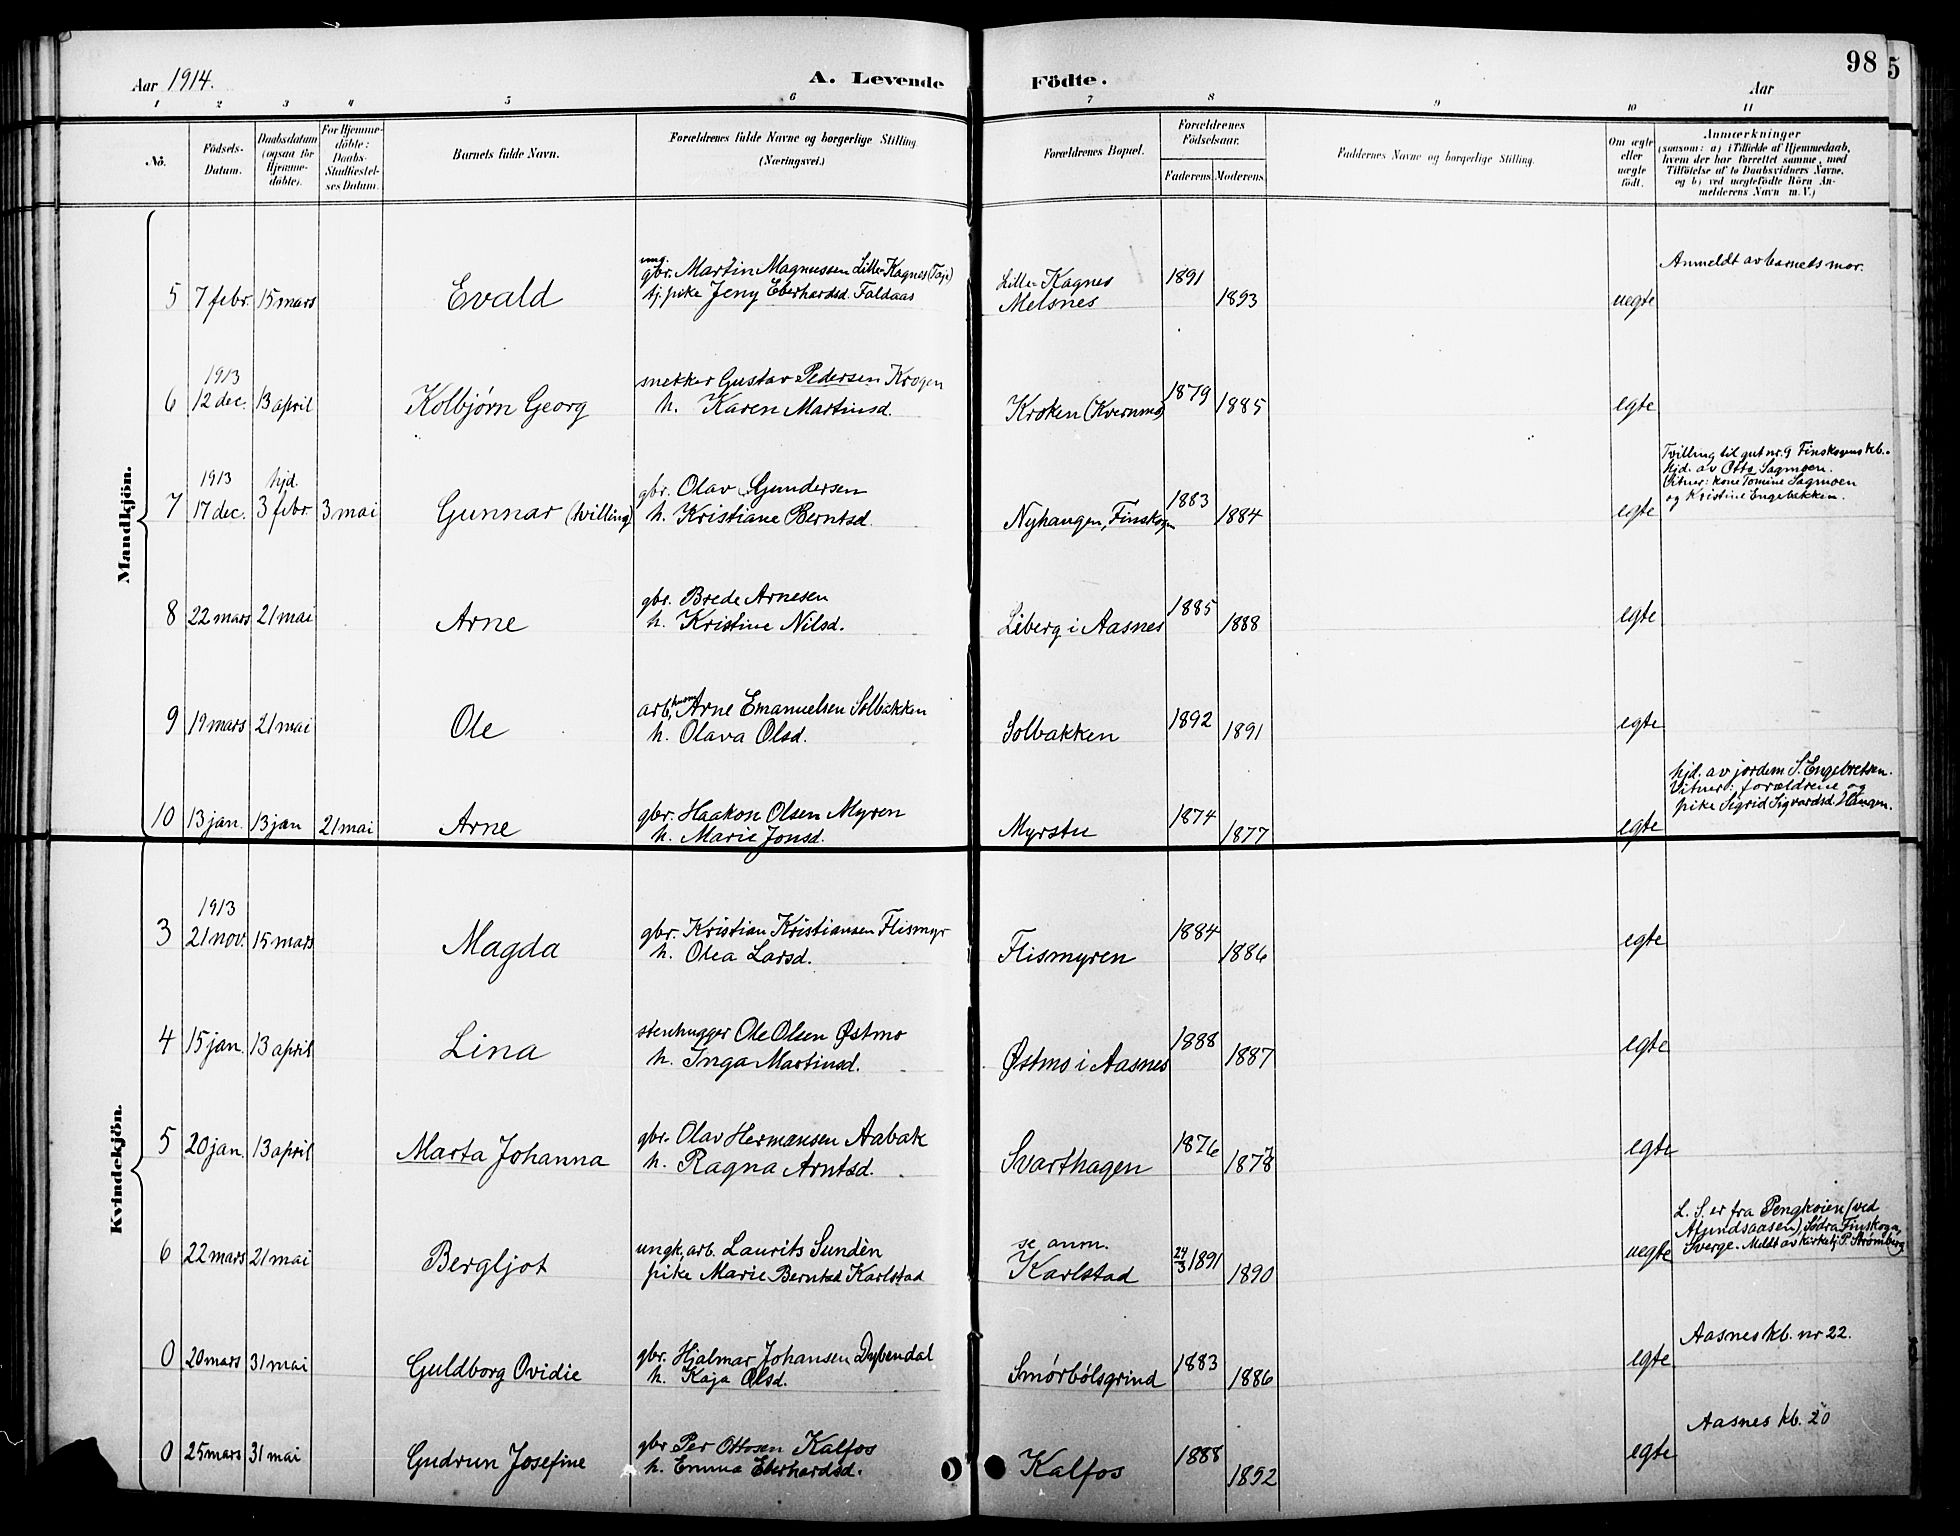 Aar 1914.
A. Levende
Födte.
98
5
Aar
1 2 3 4 5 6 7 8 9 10 11
No.
Födsels-
Datum.
Daabsdatum
(ogsaa for
Hjemme-
döbte).
For Hjemme-
döbte:
Daabs-
Stadfæstel-
ses Datum.
Barnets fulde Navn.
Forældrenes fulde Navne og borgerlige Stilling
(Næringsvei.)
Forældrenes Bopæl.
Forældrenes
Födselsaar.
Faderens.
Moderens.
Faddernes Navne og borgerlige Stilling.
Om ægte
eller
uægte
födt.
Anmærkninger
(saasom: a) i Tilfælde af Hjemmedaab,
hvem der har forrettet samme, med
Tilföielse af to Daabsvidners Navne,
og b) ved uægtefödte Börn An-
melderens Navn m. V.)
Mandkjön.
5 7 febr. 15 mars Evald
ung.
gbr. Martin Magnussen Litle-Kagnes (Tajе)
tj. pike Jeny Eberhardsd. Faldaas
Litle-Kagnes
Melsnes
1891 1893 uegte
Anmeldt av barnets mor.
1913
6 12 dec. 13 april Kolbjørn Georg
snekker Gustav Pedersen Krogen
h. Karen Martinsd.
Kroken (Kvernmo) 1879 1885 egte
1913 hjd.
7 17 dec. 3 febr 3 mai Gunnar (tvilling)
gbr. Olav Gundersen
h. Kristiane Berntsd.
Nyhaugen, Finskogen 1883 1884 egte
Tvilling til gut nr. 9 Finskogens kb.
hjd. av Otto Sagmoen.
Vitner: kone Tomine Sagmoen
og Kristine Engebakken.
8 22 mars 21 mai Arne
gbr. Brede Arnesen
h. Kristine Nilsd.
Liberg i Aasnes 1885 1888 egte
9 19 mars 21 mai Ole
arb, Arne Emanuelsen Solbakken
h. Olava Olsd.
Solbakken 1892 1891 egte
10 13 jan. 13 jan 21 mai Arne
gbr. Haakon Olsen Myren
h. Marie Jonsd.
Myrstu 1874 1877 egte
hjd. av jordem S. Engebretsen.
Vitner: forældrene og
pike Sigrid Sigvardsd. Haugen.
Kvindekjön.
1913
3 21 nov. 15 mars Magda
gbr. Kristian Kristiansen Flismyr
h. Olea Larsd.
Flismyren 1884 1886 egte
4 15 jan. 13 april Lina
stenhugger Ole Olsen Østmo
h. Inga Martinsd.
Østmo i Aasnes 1888 1887 egte
5 20 jan. 13 april Marta Johanna
gbr. Olav Hermansen Aabak
h. Ragna Arntsd.
Svarthagen 1876 1878 egte
6 22 mars 21 mai Bergljot
ungk, arb. Laurits Sundèn
pike Marie Berntsd Karlstad
se anm.
Karlstad 24/3 1891 1890 uegte
L. S. er fra Pengkoien (ved
Afundsaasen), Södra Finskoga,
Sverge. Meldt av kirketj. P. Strømberg
0 20 mars 31 mai Guldborg Ovidie
gbr. Hjalmar Johansen Dybendal
h. Kaja Olsd.
Smørbølsgrind 1883 1886 egte
Aasnes kb. nr 22.
0 25 mars 31 mai Gudrun Josefine
gbr Per Ottosen Kalfos
h. Emma Eberhardsd.
Kalfos 1888 1892 egte
Aasnes kb. 20